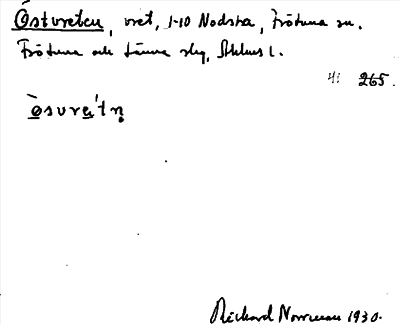 Östvreten, vret, 1-10 Nodsta, Frötuna sn.
Frötuna och Länna slg, Sthlms l.
4: 265.
ò̱svrea̱'tṇ
Richard Norrman 1930.